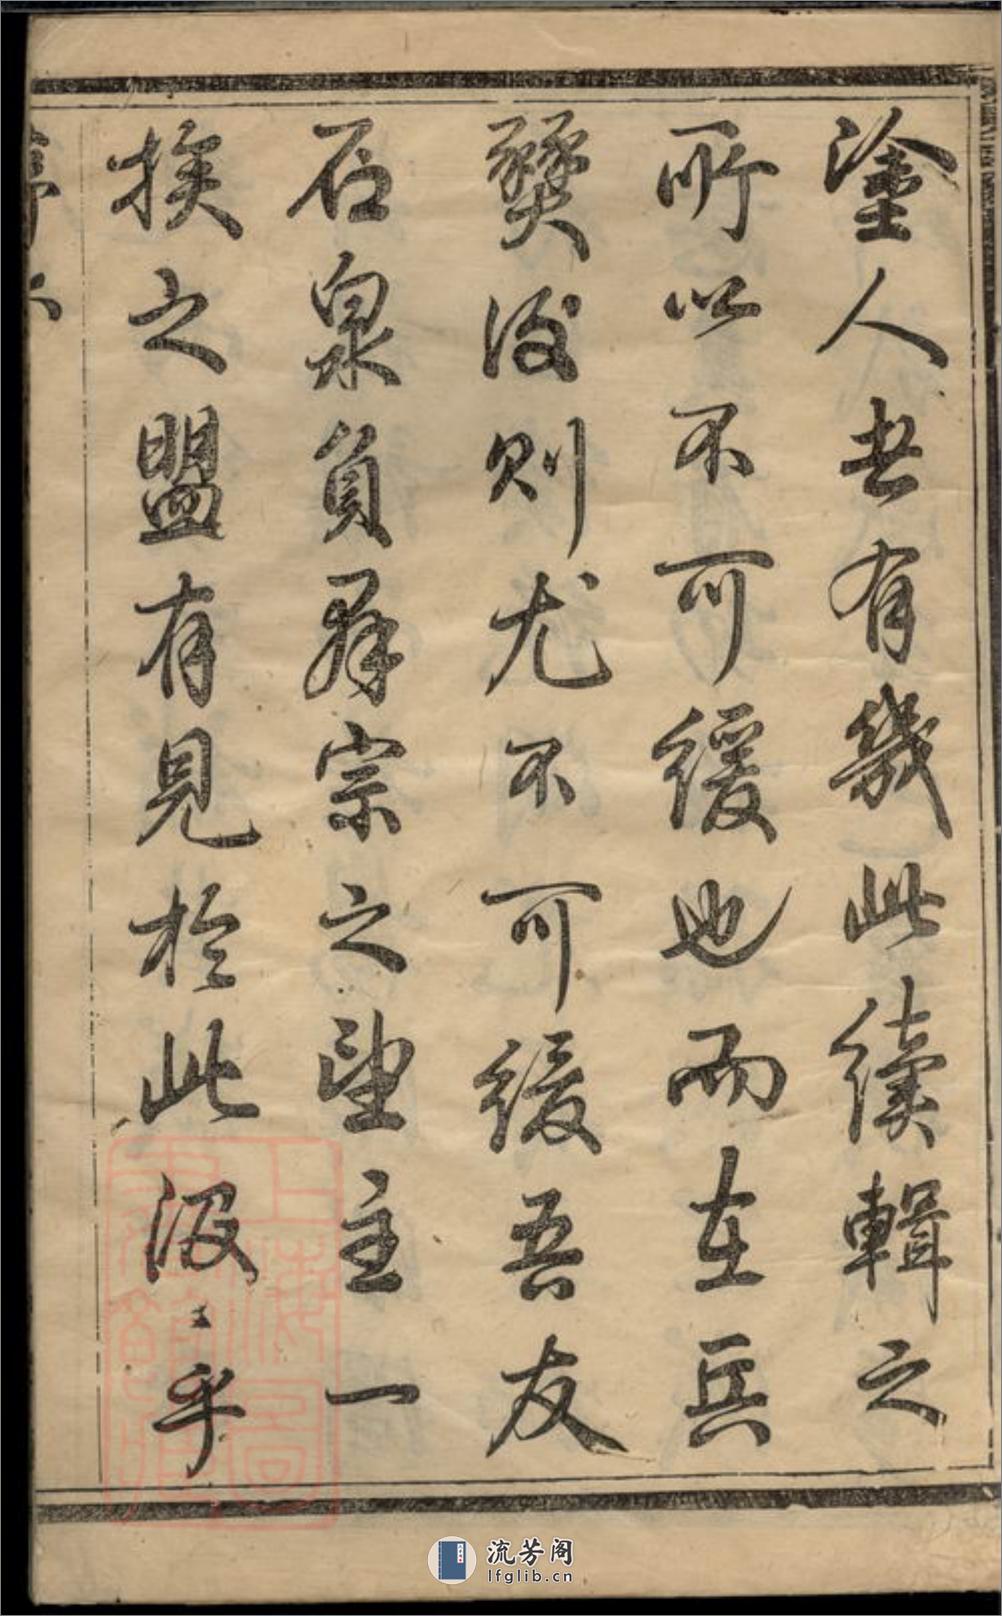 塗人者有幾此續輯之
所以不可緩也而在兵
燹後則尤不可緩吾友
石泉負群宗之望主一
族之盟有見於此汲〻乎
上海圖書館藏
流芳阁
lfglib.cn